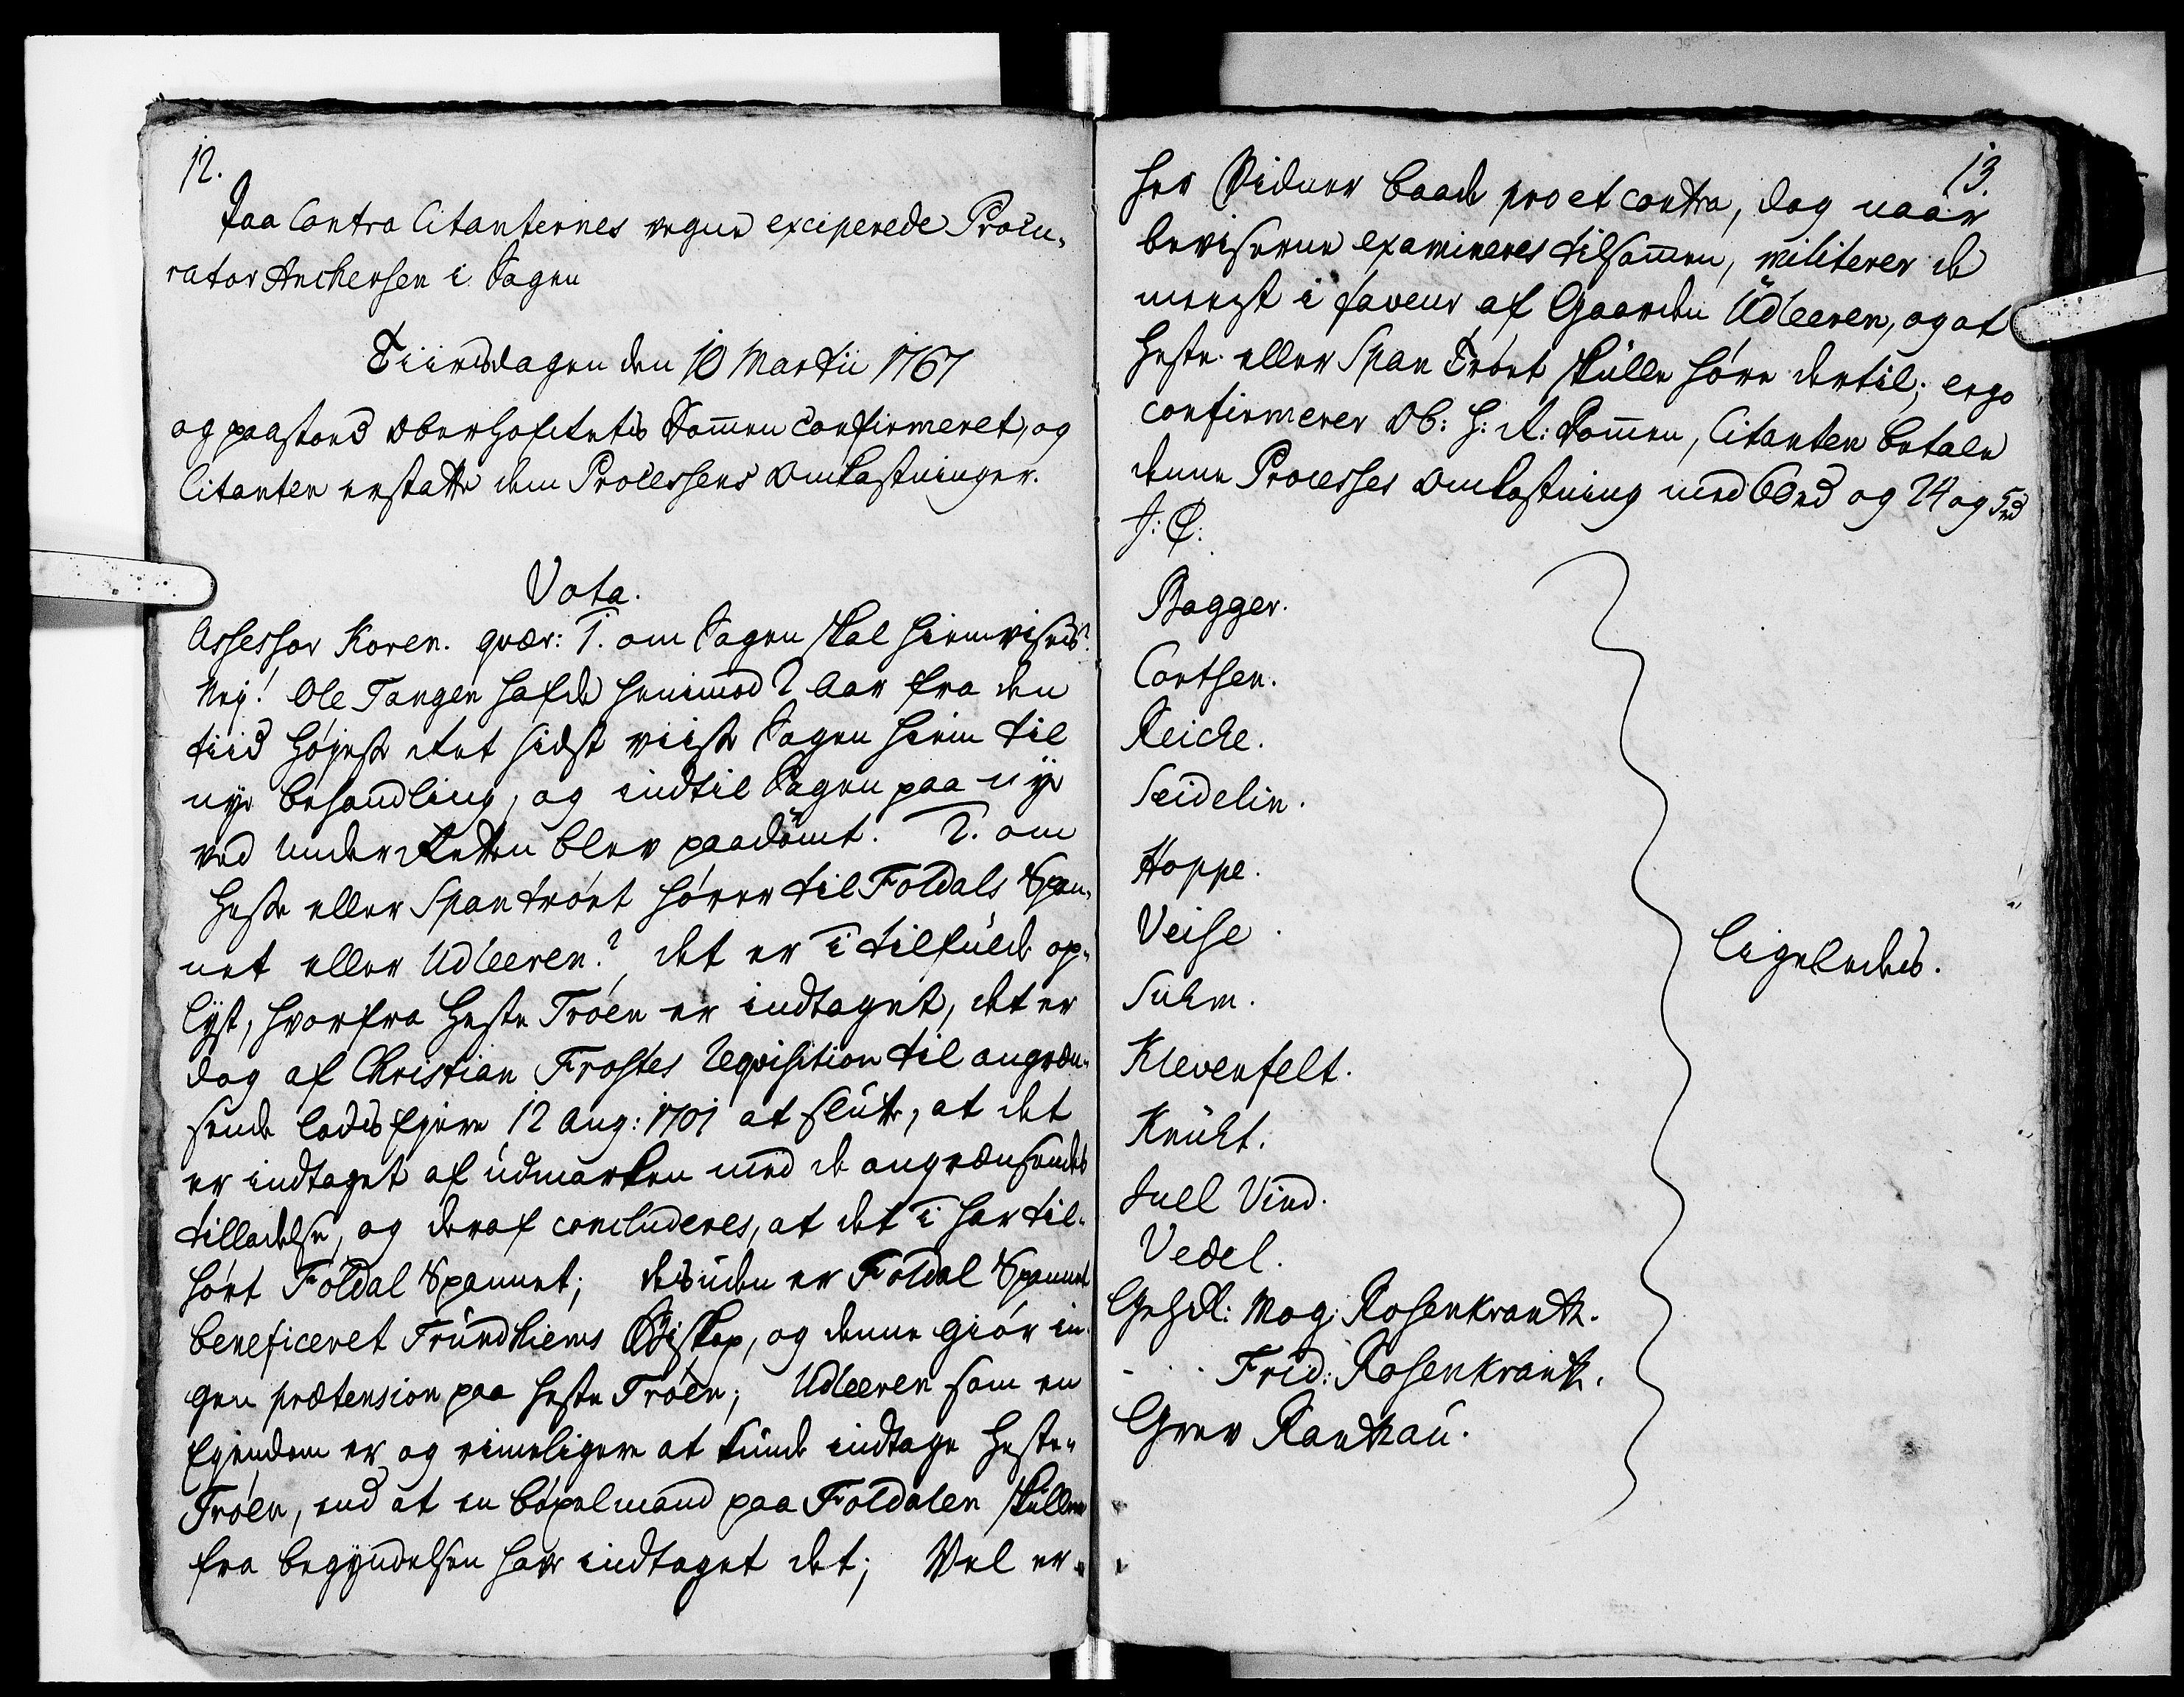 12.
Paa Contra Citanternes vegne exciperede Procu-
rator Anchersen i Sagen
Tiirsdagen den 10 Martii 1767
og paastoed Oberhofrettens Dommen confirmeret, og
Citanten erstatte dem Processens Omkostninger.
Vota.
Assessor Koren. qvær: 1. om Sagen skal hiemvises?
Nej! Ole Tangen hafde henimod 2 Aar fra den
tiid Højeste Ret sidst viiste Sagen hiem til
nye behandling, og indtil Sagen paa nye
ved Under Retten blev paadømt. 2. om
Heste eller Span trøet hører til Foldals Span-
net eller Udleeren? det er ei tilfulde op-
lyst, hvorfra Heste Trøen er indtaget, det er
dog af Christian Frostes Reqvisition til angræn-
sende lods Ejere 12 Aug: 1701 at slutte, at det
er indtaget af udmarken med de angrændsendes
tilladelse, og deraf concluderes, at det ei har til-
hørt Foldal Spannet; desuden er Foldal Spannet
beneficeret Trundhiems Biskop, og denne giør in-
gen prætension paa Heste Trøen; Udleeren som en
Ejendom er og rimeligere at kunde indtage Heste-
Trøen, end at en bøxelmand paa Foldalen skulle
fra begyndelsen have indtaget det; Vel er-
13.
her Vidner baade pro et contra, dog naar
beviserne examineres tilsammen, militerer de
meest i faveur af Gaarden Udleeren, og at
Heste eller Span Trøet skulle høre dertil; ergo
confirmerer Ob: H: R: Dommen, Citanten betale
denne Processes Omkostning med 60rd og 24 og 5rd
J: C:
Bagger.
Cortsen.
Reiche.
Seidelin.
Hoppe.
Veise.
Suhm.
Klevenfelt.
Knuht.
Juel Vind.
Vedel.
Ligeledes.
Geh: R: Mog: Rosenkrantz.
- - - Frid: Rosenkrantz.
Grev Rantzau.